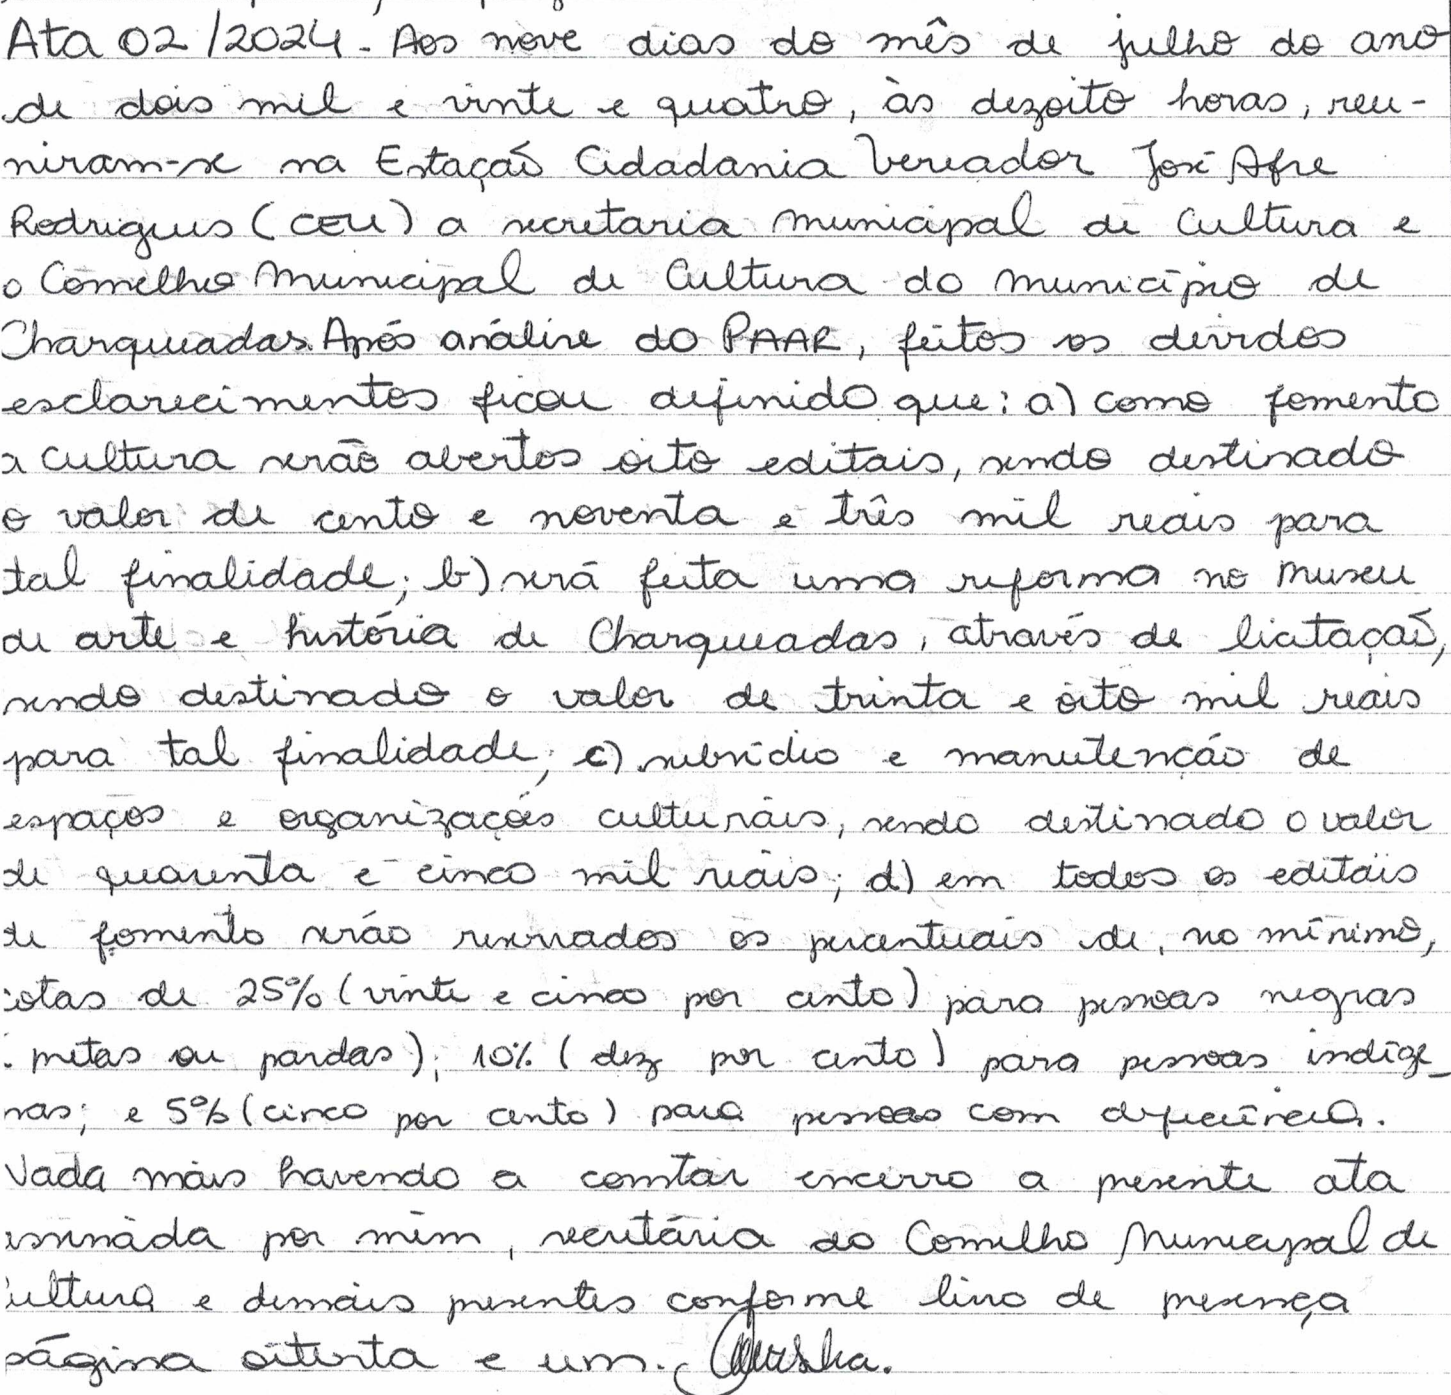 Ata 02/2024 - Aos nove dias do mês de julho do ano
de dois mil e vinte e quatro, às dezoito horas, reu-
niram-se na Estação Cidadania Vereador José Afre
Rodrigues (CEU) a secretaria municipal de Cultura e
o Conselho Municipal de Cultura do município de
Charqueadas. Após análise do PAAR, feitos os devidos
esclarecimentos ficou definido que: a) como fomento
a cultura serão abertos oito editais, sendo destinado
o valor de cento e noventa e três mil reais para
tal finalidade; b) será feita uma reforma no museu
de arte e história de Charqueadas, através de licitação,
sendo destinado o valor de trinta e oito mil reais
para tal finalidade; c) subsídio e manutenção de
espaços e organizações culturais, sendo destinado o valor
de quarenta e cinco mil reais; d) em todos os editais
de fomento serão reservados os percentuais de, no mínimo,
cotas de 25% (vinte e cinco por cento) para pessoas negras
(pretas ou pardas); 10% (dez por cento) para pessoas indíge-
nas; e 5% (cinco por cento) para pessoas com deficiência.
Nada mais havendo a constar encerro a presente ata
assinada por mim, secretária do Conselho Municipal de
Cultura e demais presentes conforme livro de presença
página oitenta e um.